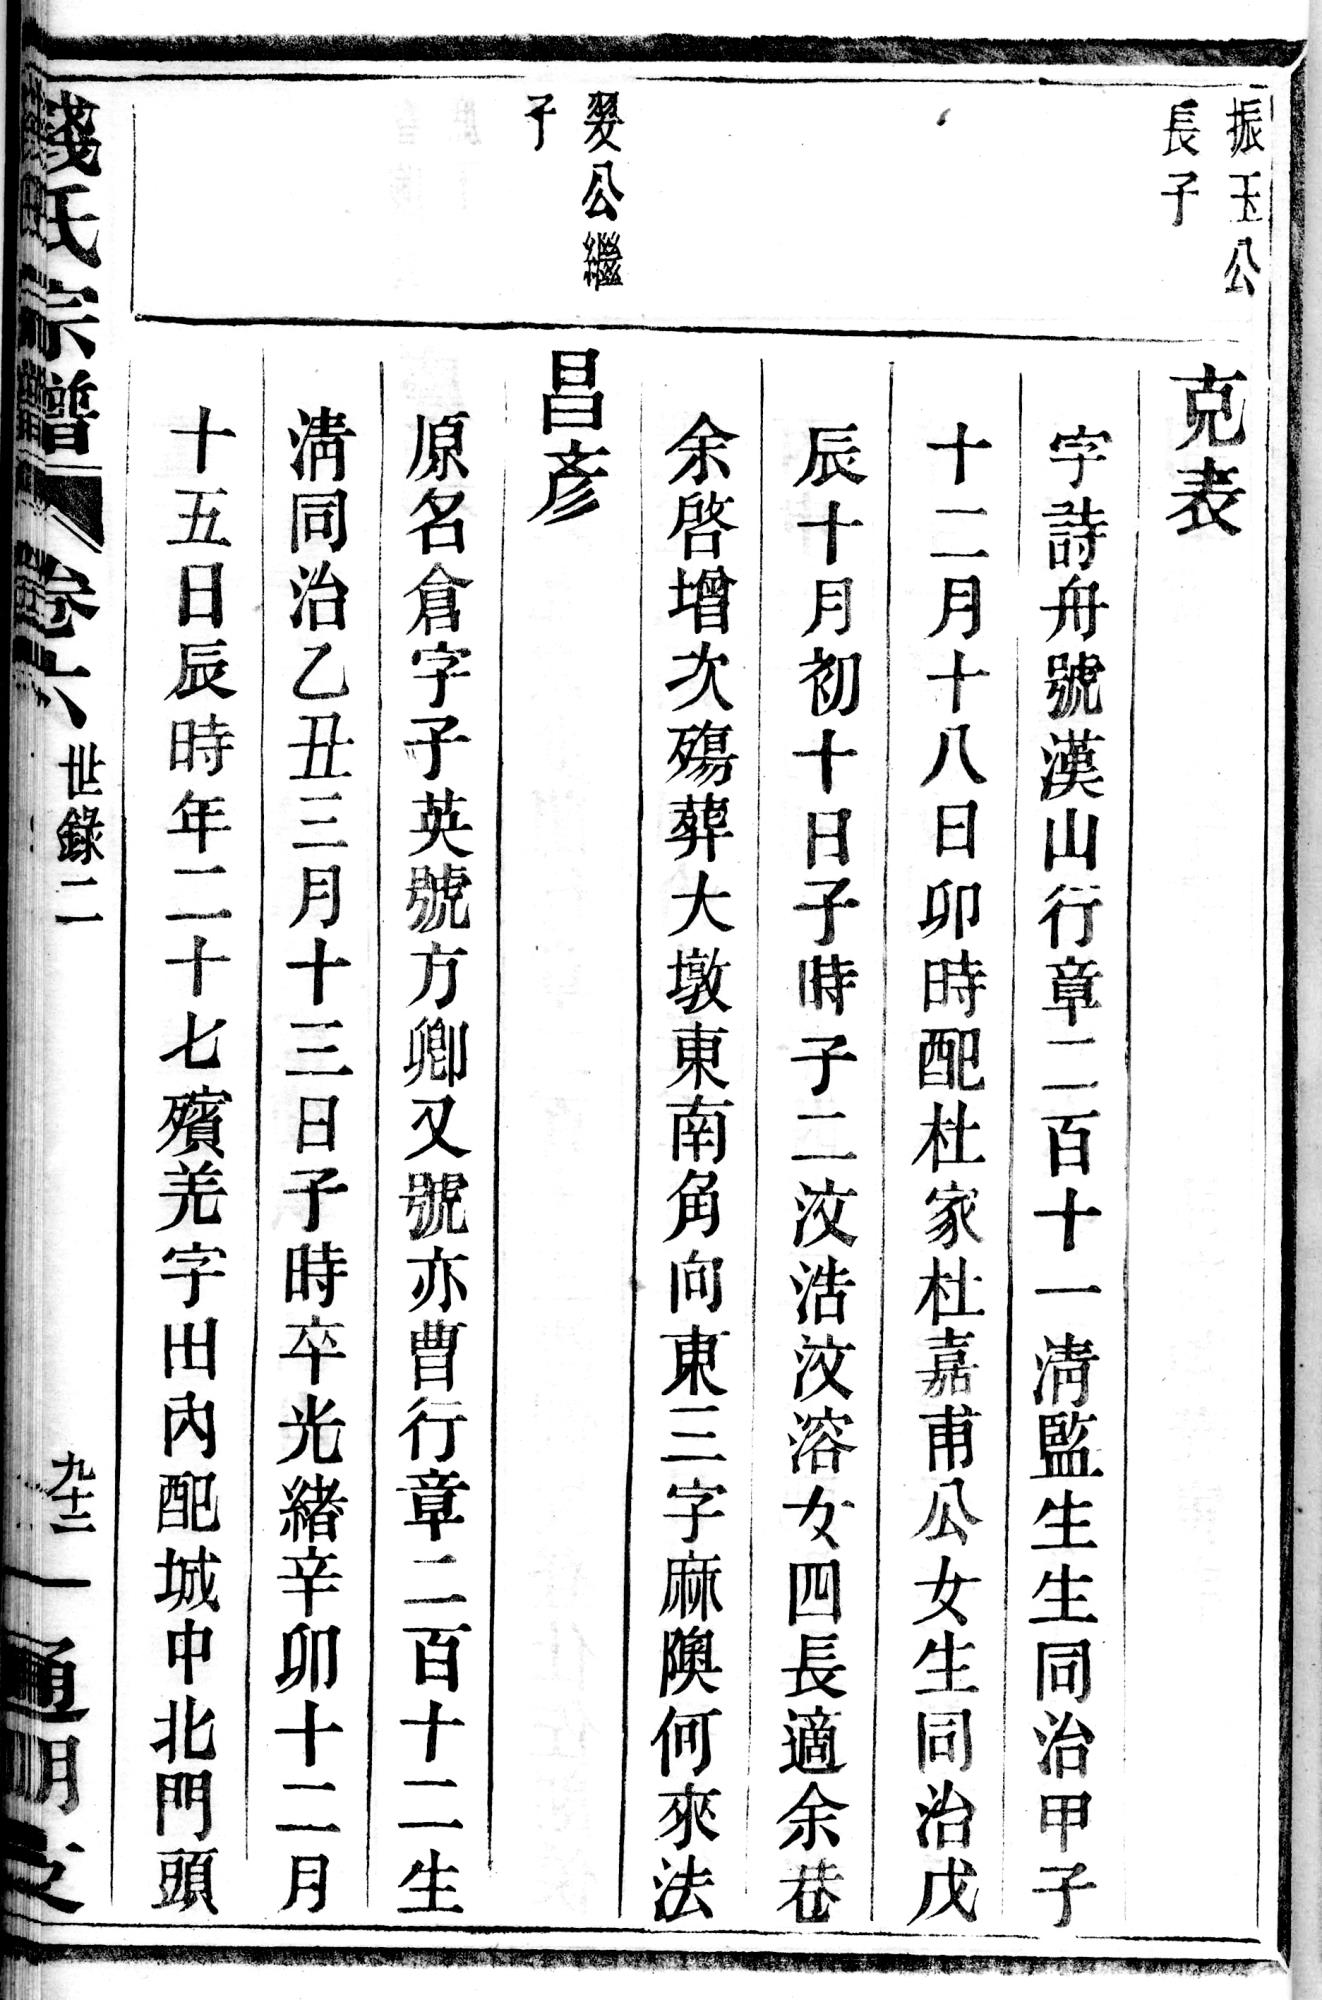 振玉公
長子
克表
字詩舟號漢山行章二百十一淸監生生同治甲子
十二月十八日卯時配杜家杜嘉甫公女生同治戊
辰十月初十日子時子二汶浩汶溶女四長適余巷
余啓增次殤葬大墩東南角向東三字麻隩何來法
翠公繼
子
昌彥
原名倉字子英號方卿又號亦曹行章二百十二生
淸同治乙丑三月十三日子時卒光緒辛卯十二月
十五日辰時年二十七殯羌字田內配城中北門頭
錢氏宗譜
卷六
世錄二
九十二
通明支